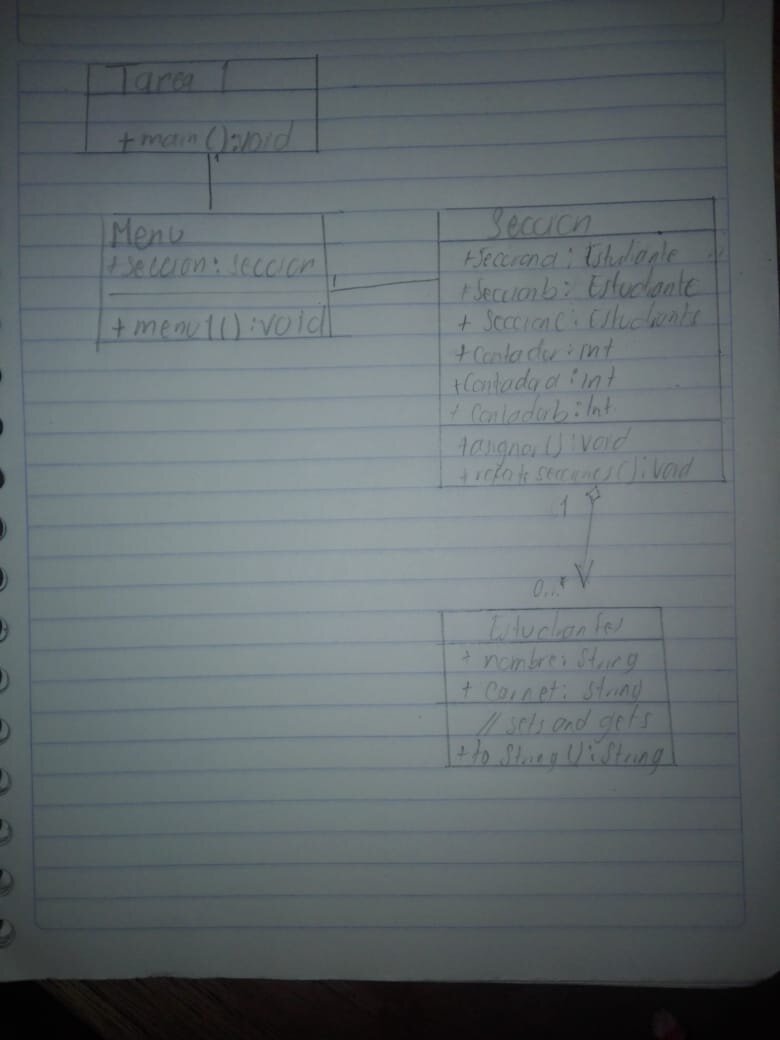 Tarea 1
+ main():void
1
Menu
+ seccion: seccion
+ menu1():void
1
Seccion
+ Secciona: Estudiante
+ Seccionb: Estudiante
+ Seccionc: Estudiante
+ Contador: int
+ Contadora: int
+ Contadorb: Int
+ asignar():void
secciones():void
1
0...*
Estudiantes
+ nombre: String
+ Carnet: String
// sets and gets
+ to String(): String